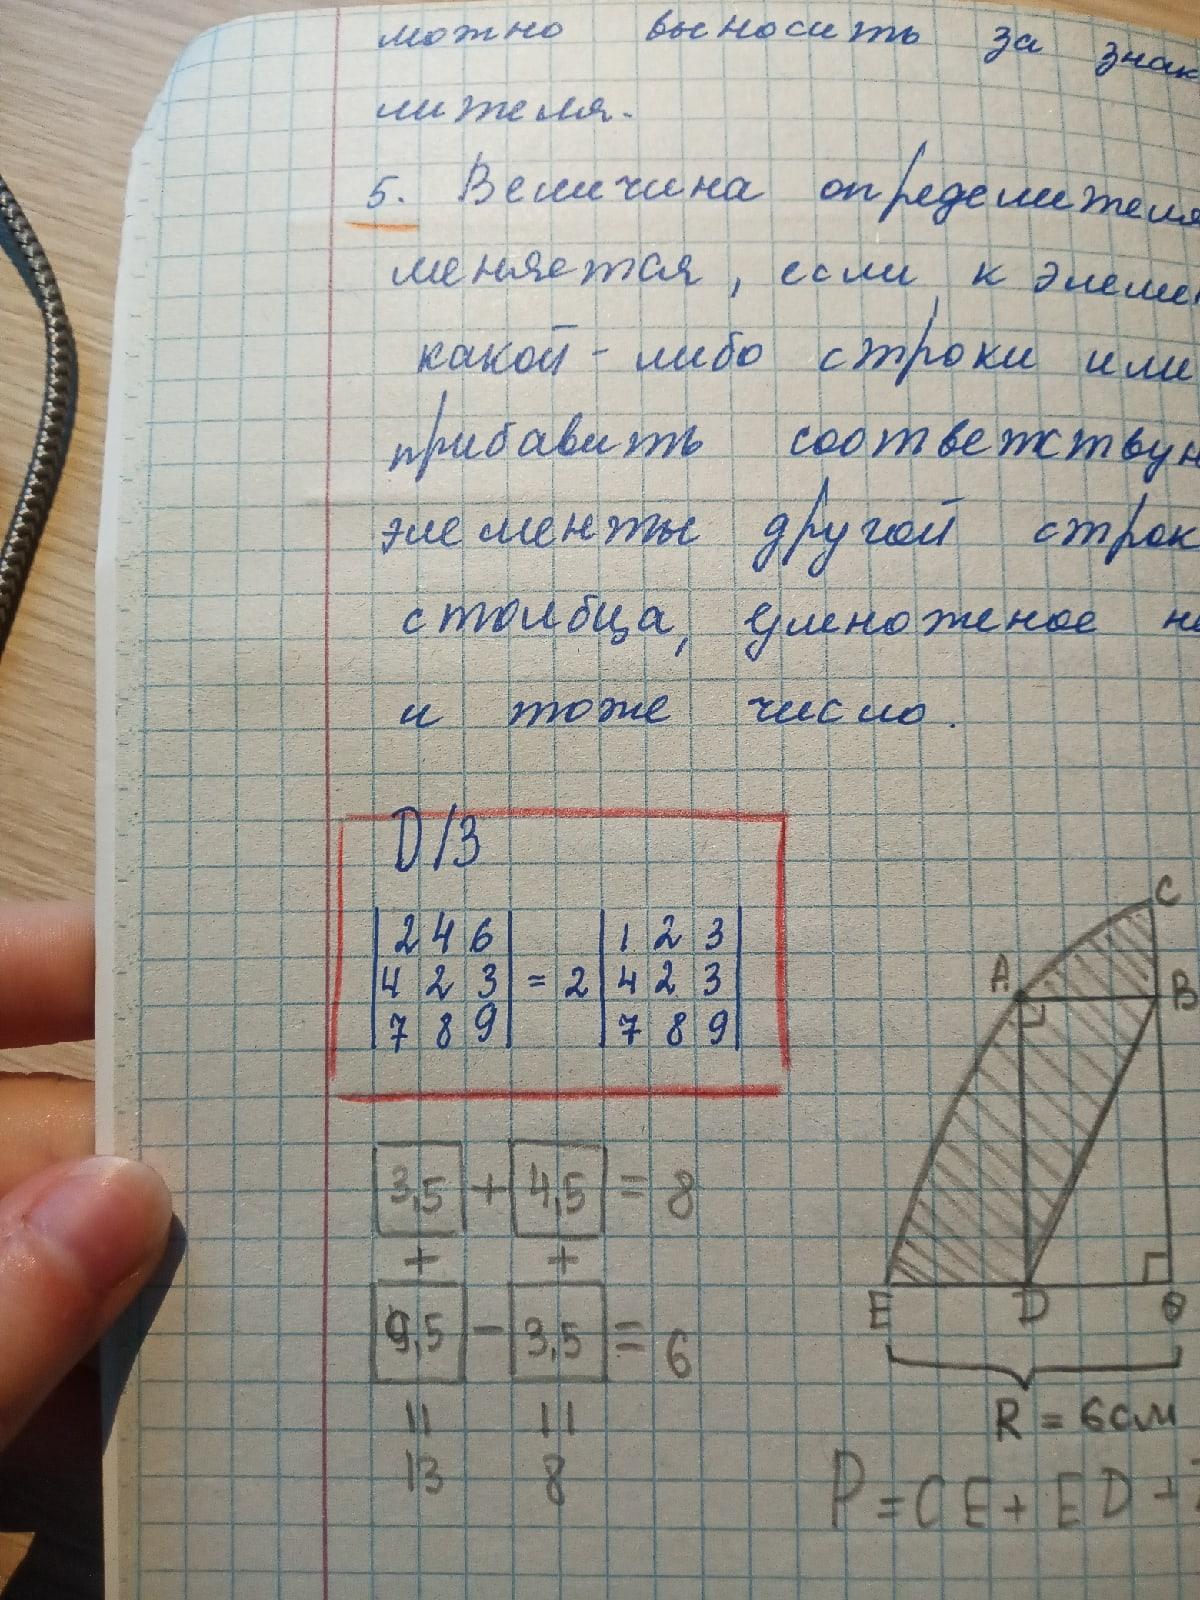 можно выносить за знак
лителя.
5. Величина определителя
меняется, если к элемен
какой-либо строки или
прибавить соответствую
элементы другой строк
столбца, умноженое на
и тоже число.
D/З
|2 4 6| |1 2 3|
|4 2 3| = 2 |4 2 3|
|7 8 9| |7 8 9|
3,5 + 4,5 = 8
+ +
9,5 - 3,5 = 6
11 11
13 8
C
A B
E D O
R = 6см
P = CE + ED +